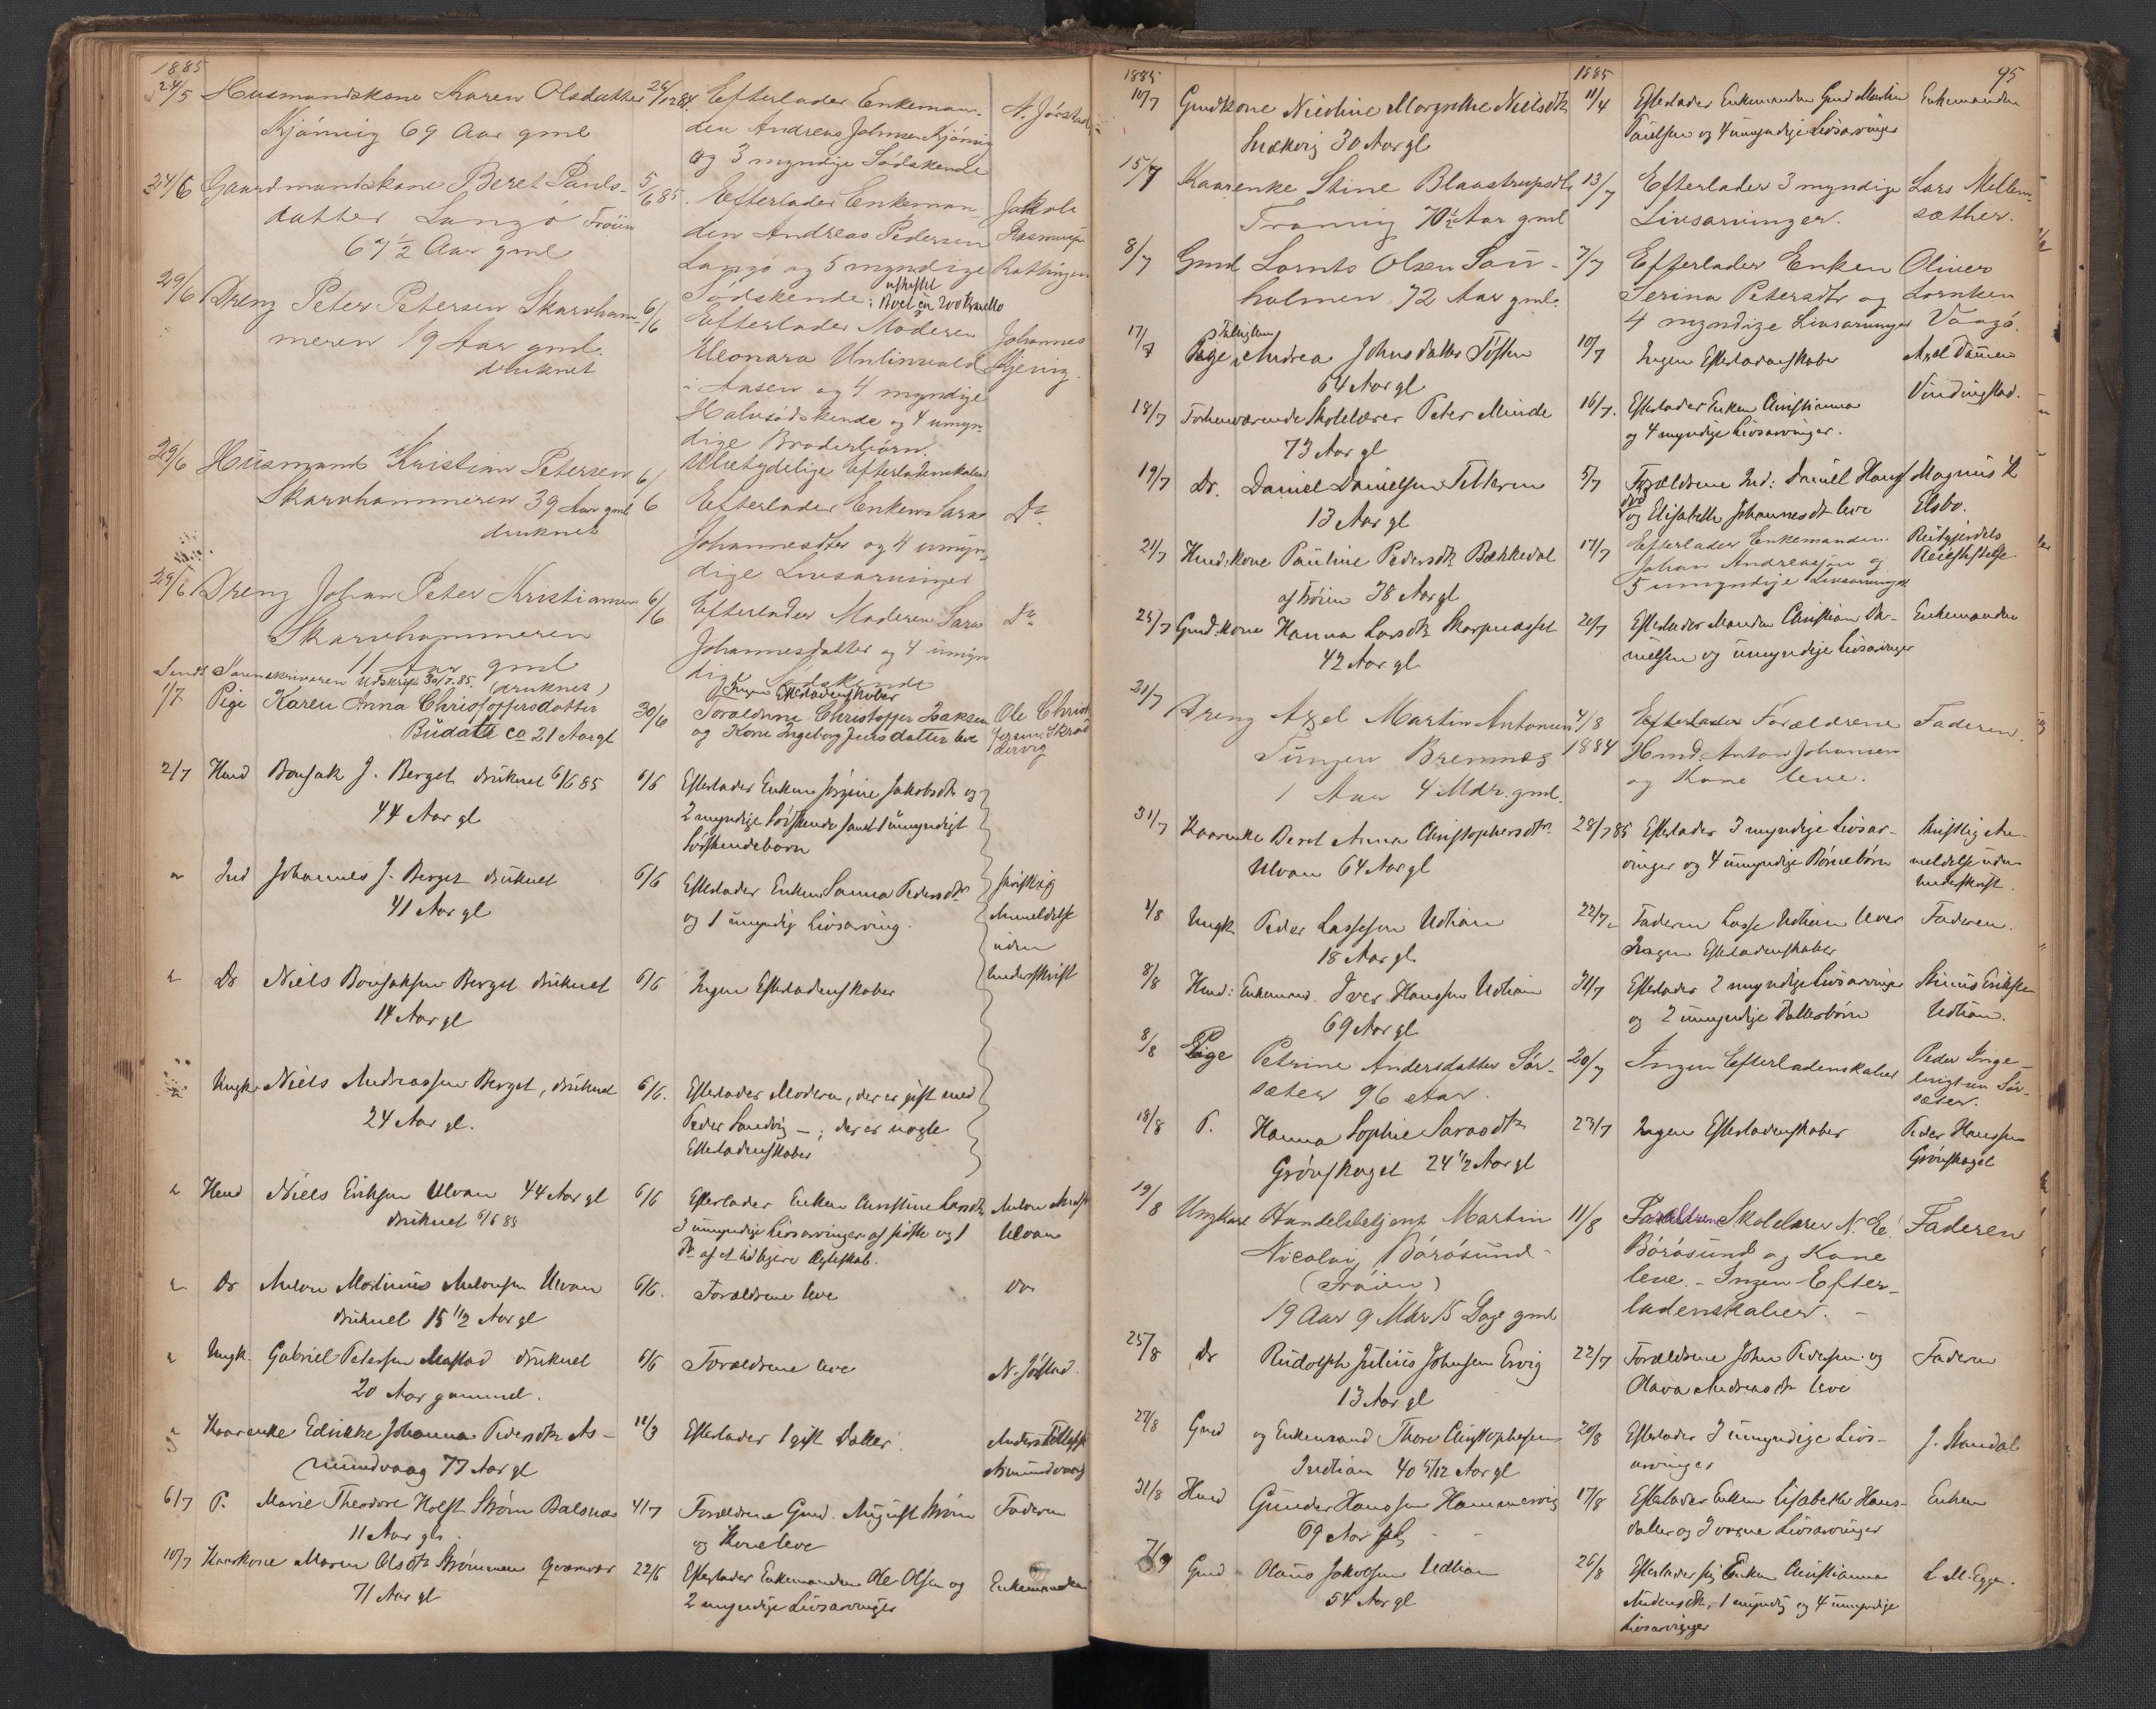 1885
24/5 Husmandskone Karen Olsdatter 24/12 84 Efterlader Enkeman- N. Jørstad
Kjønnig 69 Aar gml den Andreas Johnsen Kjønnig
og 3 myndige Sødskende
24/6 Gaardmandskone Beret Pauls- 5/6 85. Efterlader Enkeman- Jakob
datter Langø Frøien den Andreas Pedersen Rasmus
67 1/2 Aar gml Langø og 5 myndige
Sødskende:
29/6 Dreng Peter Petersen Skarvham- 6/6 Efterlader Moderen Johannes
meren 19 Aar gml. Eleonara
druknet i Aasen og 4 myndige
Halvsødskende og 4 umyn-
dige Broderbjørn.
Ubetydelige Efterladenskaber
29/6 Husmand Kristian Petersen 6/6 Efterlader Enken Sara Do
Skarvhammeren 39 Aar gml Johannesdtr og 4 umyn-
druknet dige Livsarvinger
29/6 Dreng Johan Peter Kristiansen 6/6 Efterlader Moderen Sara Do
Skarvhammeren Johannesdatter og 4 umyn-
11 Aar gml dige Sødskende
Sendt Sorenskriveren Udskrift 30/7.85. (druknet) Ingen Efterladenskaber
1/7 Pige Karen Anna Christoffersdatter 30/6 Forældrene Christoffer Isaksen Ole Christ
ca 21 Aar gl og Kone Ingeborg Jensdatter leve
2/7 Hmd Bonsak J. Berget druknet 6/6 85 6/6 Efterlader Enken Jakobsdtr og
44 Aar gl 2 myndige Søskende samt 1 umyndigt
Søskendebarn
Ind Johannes J. Berget druknet 6/6 Efterlader Enken Sanna Pedersdtr skriftlig
41 Aar gl og 1 umyndig Livsarving. Anmeldelse
uden
Dr Niels Bonsaksen Berget druknet 6/6 Ingen Efterladenskaber Underskrift
14 Aar gl
Ungk Niels Andreassen Berget, druknet 6/6. Efterlader Moderen, der er gift med
24 Aar gl. Peder Sandvig –; der er nogle
Efterladenskaber
Hmd Niels Eriksen Ulvan 44 Aar gl 6/6 Efterlader Enken Christine Larsdtr Anton
druknet 6/6 85 3 umyndige Livsarvinger af sidste og 1 Ulvan
Do af et tidligere Ægteskab.
Dr Anton Martinus Antonsen Ulvan 6/6. Forældrene leve Do
druknet 15 1/2 Aar gl
Ungk. Gabriel Petersen Mastad druknet 6/6 Forældrene leve N. Jøstad
20 Aar gammel.
Kaarenke Edvikke Johanna Pedersdtr As- 11/3 Efterlader 1 gift Datter. Anders
mundvaag 77 Aar gl Asmundvaag
6/7 P. Marie Theodore Holst Strøm Balsnæs 4/7 Forældrene Gmd. August Strøm Faderen
11 Aar gl. og Kone leve
10/7 Kaarkone Maren Olsdtr Strømmen Qværnvær 22/6 Efterlader Enkemanden Ole Olsen og Enkemanden
71 Aar gl 2 myndige Livsarvinger
95
1885 1885
10/7 Gmdkone Nicoline Margrethe Nielsdtr 11/4 Efterlader Enkemanden Gmd Martin Enkemanden
30 Aar gl Paulsen og 4 umyndige Livsarvinger
15/7 Kaarenke Stine Blaastrupsdtr 13/7 Efterlader 3 myndige Lars Mellem-
Framnig 70 1/2 Aar gml Livsarvinger. sæther.
8/7 Gmd Lornts Olsen Sau- 3/7 Efterlader Enken Oliver
holmen 72 Aar gml. Serina Petersdtr og Lorntsen
4 myndige Livsarvinger Vaagø.
17/7 Pige Andrea Johnsdatter Toften 10/7 Ingen Efterladenskaber Axel
64 Aar gl
18/7 Forhenværende Skolelærer Peter Minde 16/7. Efterlader Enken Christianna Vindingstad.
73 Aar gl og 4 myndige Livsarvinger.
19/7 Dr. Daniel Danielsen Titteren 5/7 Forældrene Ind: Daniel Hans Magnus H
13 Aar gl og Elisabeth Johannesdtr leve Elsbo.
21/7 Hmd:kone Pauline Pedersdtr Bækkedal 17/7 Efterlader Enkemanden
af Frøien 38 Aar gl Johan Andreassen og
5 umyndige Livsarvinger
25/7 Gmd:kone Hanna Larsdtr Skarpnæsset 20/7 Efterlader Manden Christian Da- Enkemanden
42 Aar gl nielsen og umyndige Livsarvinger
31/7 Dreng Axel Martin Antonsen 4/8 Forældrene Faderen.
Tungen Bremnes 1884 Hmd Anton Johansen
1 Aar 4 Mdr. gml. og Kone leve.
31/7 Kaarenke Beret Anna Christophersdtr. 28/7 85 Efterlader 3 myndige Livsar- skriftlig An-
Ulvan 64 Aar gl vinger og 4 umyndige Børnebørn meldelse uden
Underskrift.
4/8 Ungk Peder Lassesen Udtian 22/7 Faderen Lasse Udtian lever Faderen.
18 Aar gl. Ingen Efterladenskaber
8/8 Hmd: Enkemand. Iver Hanssen Udtian 31/7 Efterlader 2 myndige Livsarvinger Eriksen
69 Aar gl og 2 umyndige Datterbørn Udtian.
8/8 Pige Petrine Andersdatter Sør- 20/7 Ingen Efterladenskaber Peder Inge-
sæter 96 Aar. brigtsen Sør-
sæter.
18/8 P. Hanna Sophie Larsdtr 23/7 Ingen Efterladenskaber Peder Hanssen
Grønskaget 24 1/2 Aar gl Grønskaget
19/8 Ungkarl Handelsbetjent Martin 11/8 Forældrene Skolelærer N. E. Faderen
Nicolai Børøsund Børøsund og Kone
(Frøien) leve. – Ingen Efter-
19 Aar 9 Mdr 15 Dage gml ladenskaber. –
25/8 Dr Rudolph Julius Johnsen Ervig 22/7 Forældrene John Pedersen og Faderen
13 Aar gl Olava Andreasdtr leve
27/8 Gmd og Enkemand Thore Christophersen 20/8 Efterlader 3 umyndige Livs- J. Strandal
40 5/12 Aar gl arvinger
31/8 Hmd Gunder Hanssen Hammervig 17/8 Efterlader Enken Elisabeth Hans- Enken
69 Aar gl datter og 3 voxne Livsarvinger
7/9 Gmd Jakobsen Udtian 26/8 Efterlader sig Enken Christianna L. M. Egge.
54 Aar gl Andersdtr, 1 myndig og 4 umyndige
Livsarvinger